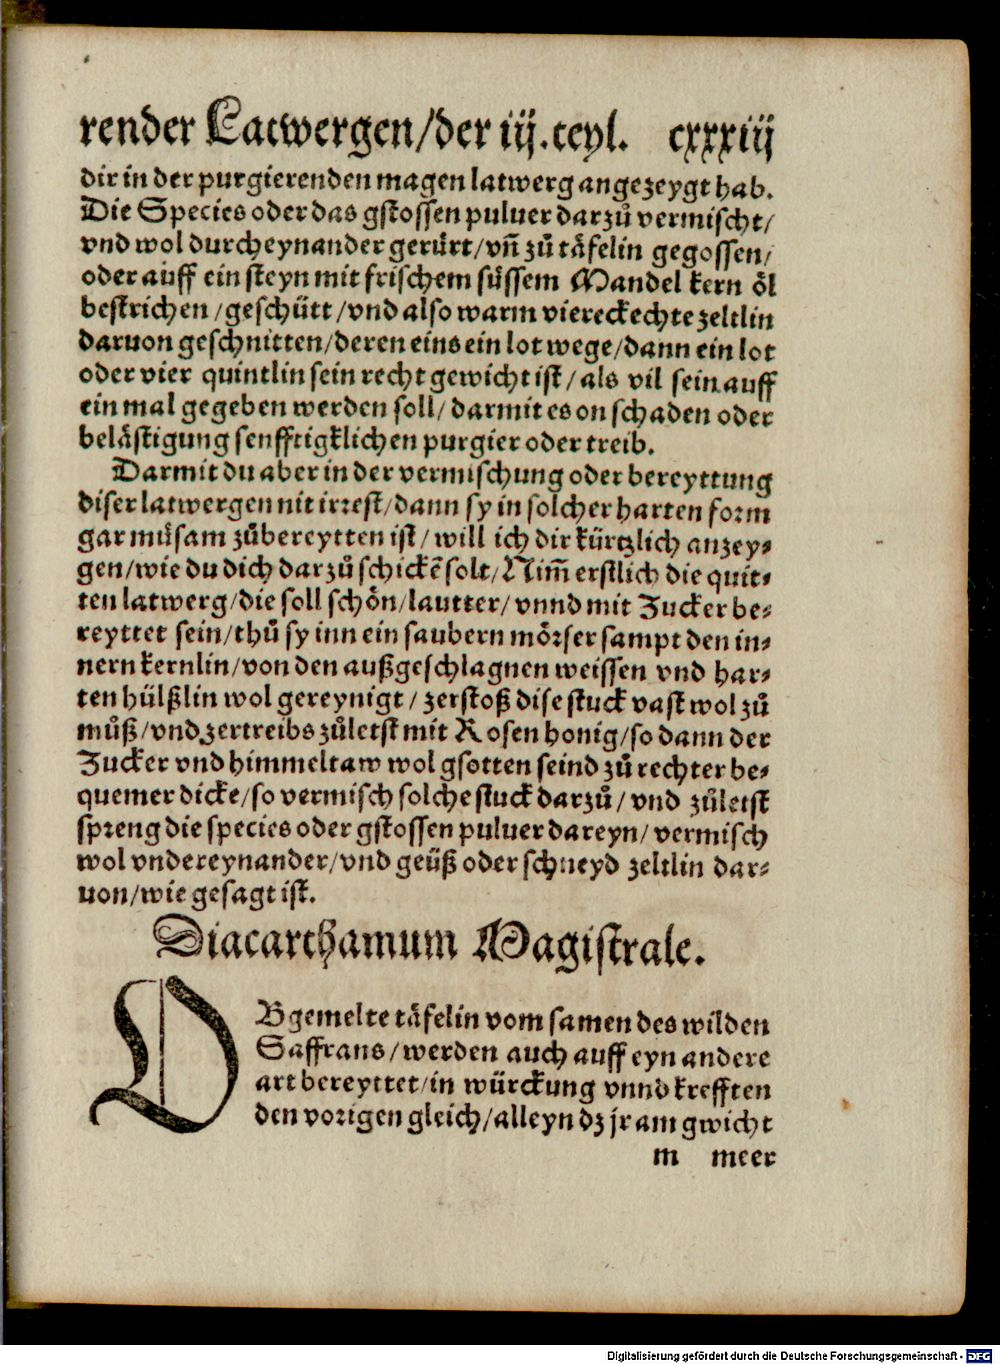 render Latwergen/der iij.teyl. cxxxiij
dir in der purgierenden magen latwerg angezeygt hab.
Die Species oder das gstossen puluer darzů vermischt/
vnd wol durcheynander gerürt/vn̄ zů täfelin gegossen/
oder auff ein steyn mit frischem süssem Mandel kern öl
bestrichen/geschütt/vnd also warm viereckechte zeltlin
daruon geschnitten/deren eins ein lot wege/dann ein lot
oder vier quintlin sein recht gewicht ist/als vil sein auff
ein mal gegeben werden soll/darmit es on schaden oder
belästigung senfftigklichen purgier oder treib.
Darmit du aber in der vermischung oder bereyttung
diser latwergen nit irrest/dann sy in solcher harten form
gar müsam zůbereytten ist/will ich dir kürtzlich anzey⸗
gen/wie du dich darzů schickē solt/Nim̄ erstlich die quit⸗
ten latwerg/die soll schön/lautter/vnnd mit Zucker be⸗
reyttet sein/thů sy inn ein saubern mörser sampt den in⸗
nern kernlin/von den außgeschlagnen weissen vnd har⸗
ten hülßlin wol gereynigt/zerstoß dise stuck vast wol zů
můß/vnd zertreibs zůletst mit Rosen honig/so dann der
Zucker vnd himmeltaw wol gsotten seind zů rechter be⸗
quemer dicke/so vermisch solche stuck darzů/vnd zůletst
spreng die species oder gstossen puluer dareyn/vermisch
wol vndereynander/vnd geüß oder schneyd zeltlin dar⸗
uon/wie gesagt ist.
Diacarthamum Magistrale.
OBgemelte täfelin vom samen des wilden
Saffrans/werden auch auff eyn andere
art bereyttet/in würckung vnnd krefften
den vorigen gleich/alleyn dz jr am gwicht
m meer
Digitalisierung gefördert durch die Deutsche Forschungsgemeinschaft - DFG